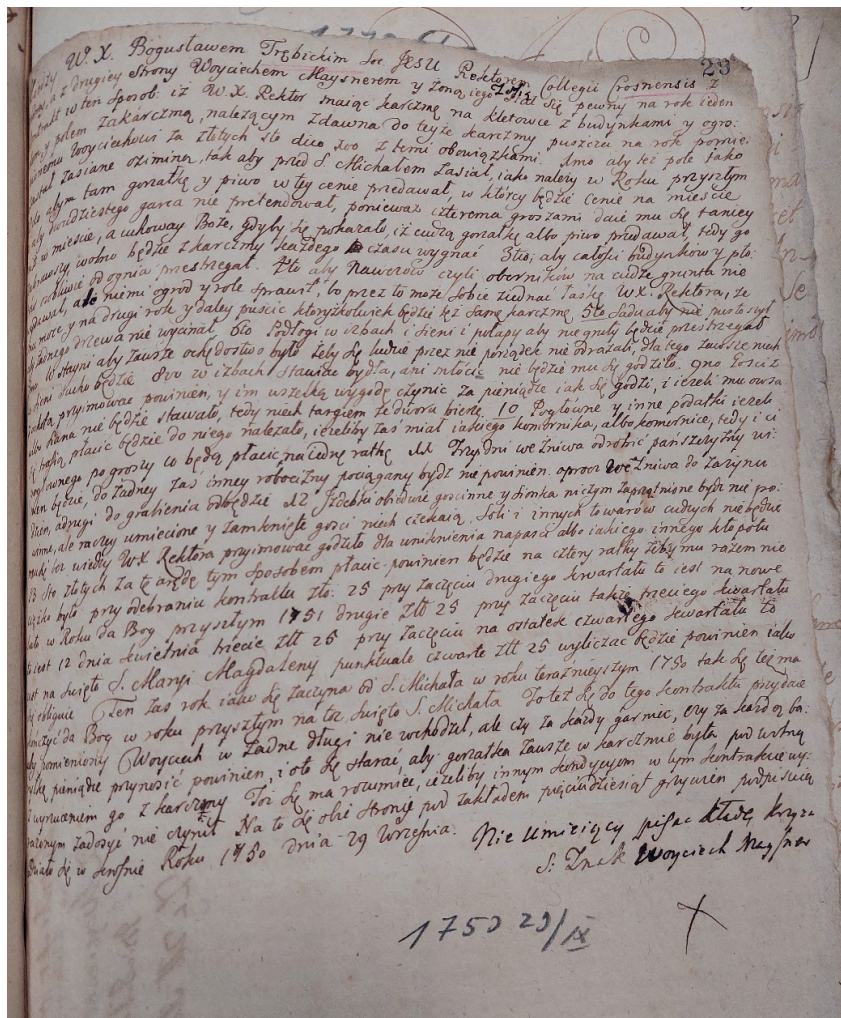 23
W. X. Bogusławem Trębickim Soc. JESU Rektorem Collegii Crosnensis z
a z drugiey strony Woyciechem Maysnerem y żoną iego stał się pewny na rok ieden
w ten sposob: iż W. X. Rektor maiąc karczmę na Kletowce z budynkami y ogro:
y polem za karczmą, należącym zdawna do teyże karczmy puszcza na rok pomie:
Woyciechowi za złotych sto dico 100 z temi obowiązkami. 1mo aby też pole iako
zasiane oziminą, tak aby przed S. Michałem zasiał, iako należy w Roku przyszłym
tam gorzałkę y piwo w tey cenie przedawał, w ktorey będzie cenie na mieście
dwudziestego garca nie pretendował, ponieważ czterema groszami daie mu się taniey
w mieście, a uchoway Boże, gdyby się pokazało, iż cudzą gorzałkę albo piwo przedawał, tedy go
wolno będzie z karczmy każdego czasu wygnać 3tio, aby całości budynkow y pło:
od ognia przestrzegał. 4to aby Nawozow czyli obornikow na cudze grunta nie
ale niemi ogrod y role sprawił, bo przez to może sobie ziednać łaskę W X. Rektora, że
może y na drugi rok y daley puscić ktoryżkolwiek będzie tęż samę karczmę 5to Sadu aby nie pustoszył
żadnego drzewa nie wycinał. 6to Podłogi w izbach i sieni i pułapy aby nie gniły będzie przestrzegał
W stayni aby zawsze ochędostwo było żeby się ludzie przez nie porządek nie odrażali, dla tego zawsze niech
sieni sucho będzie 8vo w izbach stawiać bydła, ani młocić nie będzie mu się godziło. 9no Gosci z
przyimowac powinien, y im wszelką wygodę czynic za pieniądze iak się godzi, i ieżeli mu owsa
albo siana nie będzie stawało, tedy niech targiem ze dwora bierze. 10. Pogłowne y inne podatki ieżeli
płacic będzie do niego należało, ieżeliby zaś miał iakiego komornika, albo komornicę, tedy i ci
pogłownego po groszy co będą płacic na iednę ratkę 11 Trzy dni we żniwa odrobić pańszczyzny wi:
nien będzie, do żadney zaś inney robocizny pociągany bydz nie powinien. oprocz we żniwa do zażynu
dzień, a drugi do grabienia odbędzie 12 Izdebki obiedwie goscinne y sionka niczym zaprzątnione bydz nie po:
winne, ale raczey umiecione y zamknięte gosci niech czekaią. Soli i innych towarow cudzych nie będzie
bez wiedzy W X Rektora przyimowac godziło dla uniknienia napasci albo iakiego innego kłopotu
13 Sto złotych za tę arędę tym sposobem płacic powinien będzie na cztery ratky żeby mu razem nie
ciężko było przy odebraniu kontraktu zło: 25 przy zaczęciu drugiego kwartału to iest na nowe
lato w Roku da Bog przyszłym 1751 drugie Złł 25 przy zaczęciu także trzeciego kwartału
to iest 12 dnia kwietnia trzecie Złł 25 przy zaczęciu na ostatek czwartego kwartału to
iest na święto S. Maryi Magdaleny punktuale czwarte Złł 25 wyliczac będzie powinien iako
się obliguie Ten zas rok iako się zaczyna od S. Michała w roku teraznieyszym 1750 tak się też ma
kończyc da Bog w roku przyszłym na toż święto S. Michała To też się do tego kontraktu przydaie
aby pomieniony Woyciech w żadne długi nie wchodził, ale czy za każdy garniec, czy za każdą ba:
ryłkę pieniądze przynosić powinien, i oto się starać, aby gorzałka zawsze w karczmie była pod wolną
wyrzuceniem go z karczmy Toż się ma rozumiec, ieżeliby innym kondycyom w tym kontrakcie wy:
rażonym zadosyć nie czynił Na to się obie stronie pod zakładem pięciudziesiąt grzywien podpisuią
Działo się w Krosnie Roku 1750 dnia 29 Września. Nie umieiący pisac kładę krzyża
S: Znak Woyciech Maysner
1750 29/IX